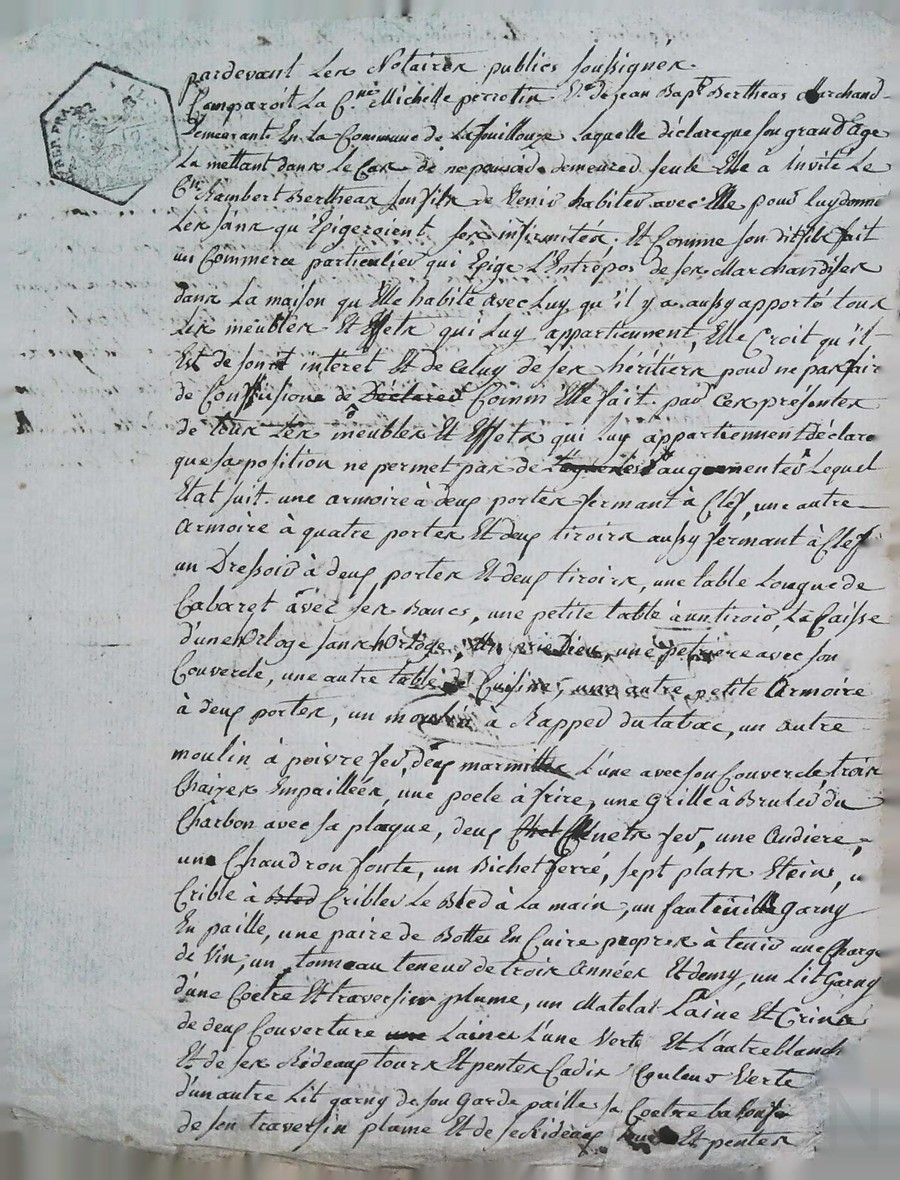 pardevant Les Notaires publics soussignés.
Comparoit La C.ne Michelle perrotin V.e de jean Bap.t Bertheas Marchand
Demeurante En La Commune de Lafouillouze Laquelle déclare que son grand âge
La mettant dans Le Cas de ne pouvoir demeurer seule Elle à Invité Le
C.en Rambert Bertheas son fils de Venir habiter avec Elle pour luy donner
Les soins qu'Exigeroient ses infirmités. Et Comme son dit fils fait
un Commerce particulier qui Exige L'Entrepos de ses Marchandises
dans La maison qu'Elle habite avec Luy qu'il y a aussy apporté tous
Les meubles Et Effets qui Luy appartiennent, Elle Croit qu'il
Est de son intérêt Et de Celuy de ses héritiers pour ne pas fair
de Confusion de Déclarer Comm Elle fait par Ces présentes
de tous Les meubles Et Effets qui luy appartiennent déclare
que sa position ne permet pas de d'augmenter Lequel
Etat suit. une armoire à deux portes fermant à Clef, une autre
armoire à quatre portes Et deux tiroirs aussy fermant à Clef
un Dressoir à deux portes Et deux tiroirs, une table Longue de
Cabaret avec ses Bancs, une petite table à un tiroir, La Caisse
d'une horloge sans horloge, Un prie Dieu, une petrière avec son
Couvercle, une autre table de Cuisine, une autre petite Armoire
à deux portes, un à Rapper du tabac, un autre
moulin à poivre fer, deux marmittes L'une avec son Couvercle, trois
Chaizes Empaillées, une poele à frire, une Grille à Bruler du
Charbon avec sa plaque, deux Chenets fer, une Andiere,
une Chaudron fonte, un Bichet ferré, sept plats Etein, u
Crible à Bled Cribler Le Bled à La main, un fauteuille garny
En paille, une paire de Bottes En Cuire propres à tenir une Charge
de Vin, un tonneau teneur de trois Années Et demy, un Lit Garny
d'une Coetre Et traversin plume, un Matelat Laine Et Crin
de deux Couverture une Laine L'une Verte Et L'autre blanch
Et de ses Rideaux tours Et pentes Cadis Couleur Verte
d'un autre Lit garny de son Garde paille sa Coetre
de son traversin plume Et de ses Rideaux Et pentes